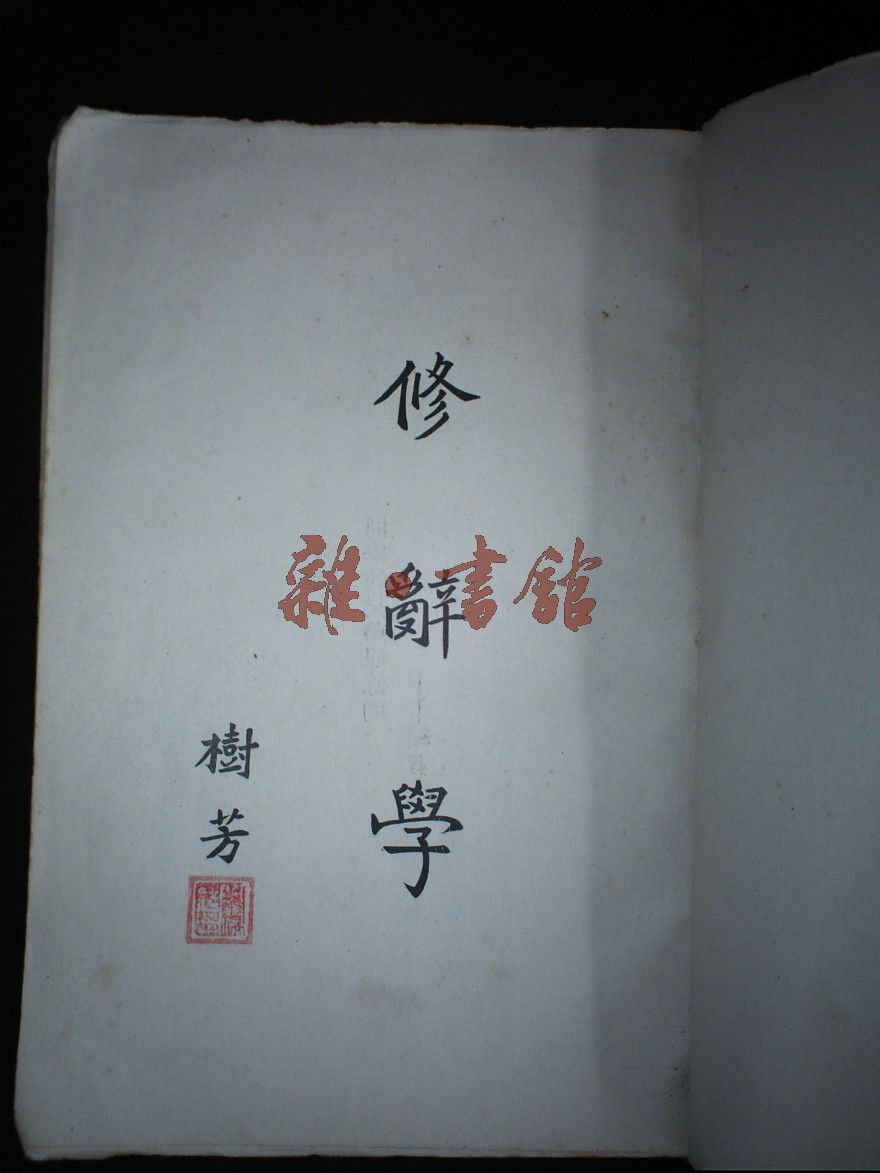 修辭學
樹芳
雜書館